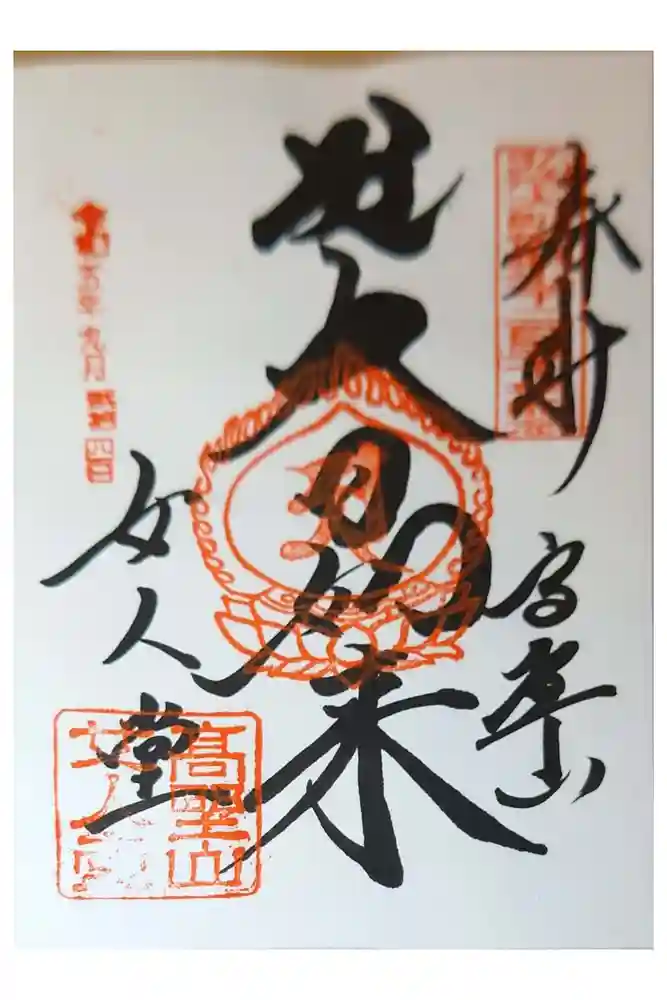 奉拝
高野山
大日如来
女人堂
令和五年九月弐拾四日
高野山
女人堂